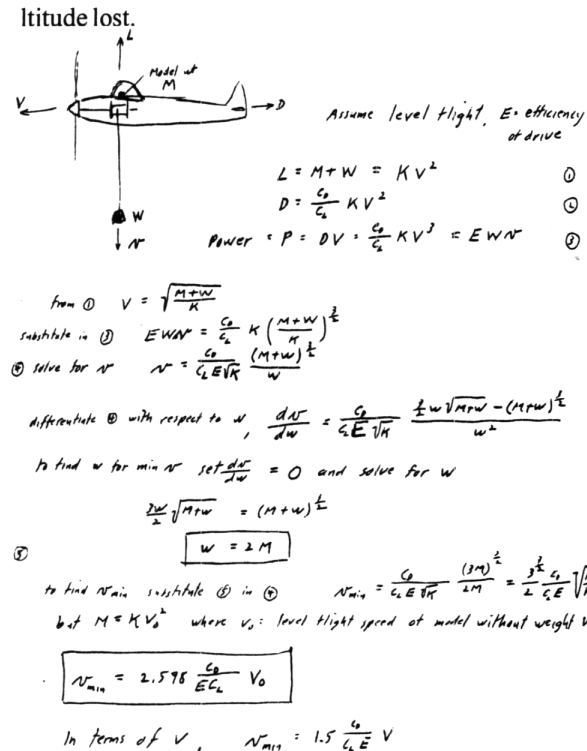 ltitude lost.
L
Model wt
M
V
D
Assume level flight, E = efficiency
of drive
W
v
L = M + W = KV² ①
D = C_D/C_L KV² ②
Power = P = DV = C_D/C_L KV³ = EWv ③
from ① V = √((M+W)/K)
substitute in ③ EWv = C_D/C_L K ((M+W)/K)^(3/2)
④ solve for v v = C_D/(C_L E√K) (M+W)^(3/2)/W
differentiate ④ with respect to W, dv/dw = C_D/(C_L E√K) (3/2 W√(M+W) - (M+W)^(3/2))/W²
to find w for min v set dv/dw = 0 and solve for W
3W/2 √(M+W) = (M+W)^(3/2)
⑤ W = 2M
to find v min substitute ⑤ in ④ v_min = C_D/(C_L E√K) (3M)^(3/2)/2M = 3^(3/2)/2 C_D/(C_L E)
but M = KV₀² where V₀ = level flight speed of model without weight
v_min = 2.598 C_D/(EC_L) V₀
In terms of V, v_min = 1.5 C_D/(C_L E) V